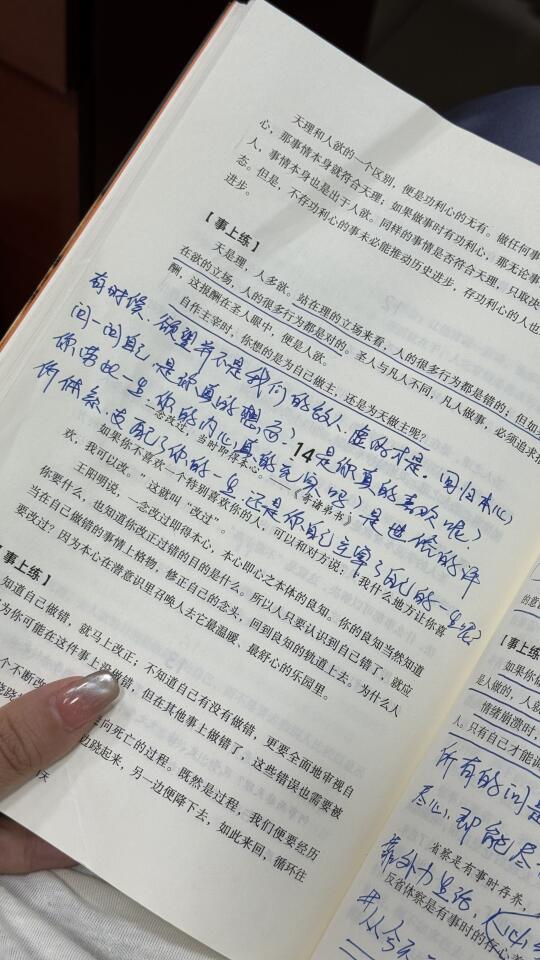 天理和人欲的一个区别，便是功利心的有无。做任何事
心，那事情本身就符合天理；如果做事时有功利心，那无论事
人，事情本身也是出于人欲。同样的事情是否符合天理，只取决
态。但是，不存功利心的事未必能推动历史进步，存功利心的人也
进步。
【事上练】
天是理，人多欲。站在理的立场来看，人的很多行为都是错的；但如
在欲的立场，人的很多行为都是对的。圣人与凡人不同，凡人做事，必须追求报
酬，这报酬在圣人眼中，便是人欲。
自作主宰时，你想的是为自己做主，还是为天做主呢？
有时候，欲望并不是我们的敌人，虚的才是，回归本心
问一问自己，是你真的想要？是你真的喜欢呢？
你苦此一生，你的内心真的充实吗？是世俗的评
价体系，支配了你的一生还是你自己主宰了自己的一生呢？
14
一念改过，当时即得本心。——《寄诸弟书》
如果你不喜欢一个特别喜欢你的人，可以和对方说：“我什么地方让你喜
欢，我可以改。”这就叫“改过”。
王阳明说，一念改过即得本心，本心即心之本体的良知。你的良知当然知道
你要什么，也知道你改正过错的目的是什么。所以人只要认识到自己错了，就应
当在自己做错的事情上格物，修正自己的念头，回到良知的轨道上去。为什么人
要改过？因为本心在潜意识里召唤人去它最温暖、最舒心的乐园里。
事上练】
知道自己做错，就马上改正；不知道自己有没有做错，更要全面地审视自
为你可能在这件事上没做错，但在其他事上做错了，这些错误也需要被
个不断改
向死亡的过程。既然是过程，我们便要经历
边跷起来，另一边便降下去，如此来回，循环往
天
【事上练】
如果你
是人做的，人就
情绪崩溃时，
人。只有自己才能调
所有的问是
尽心，即能尽
靠外力生活，
省察是有事时存养，
反省体察是有事时的存心养
从今天